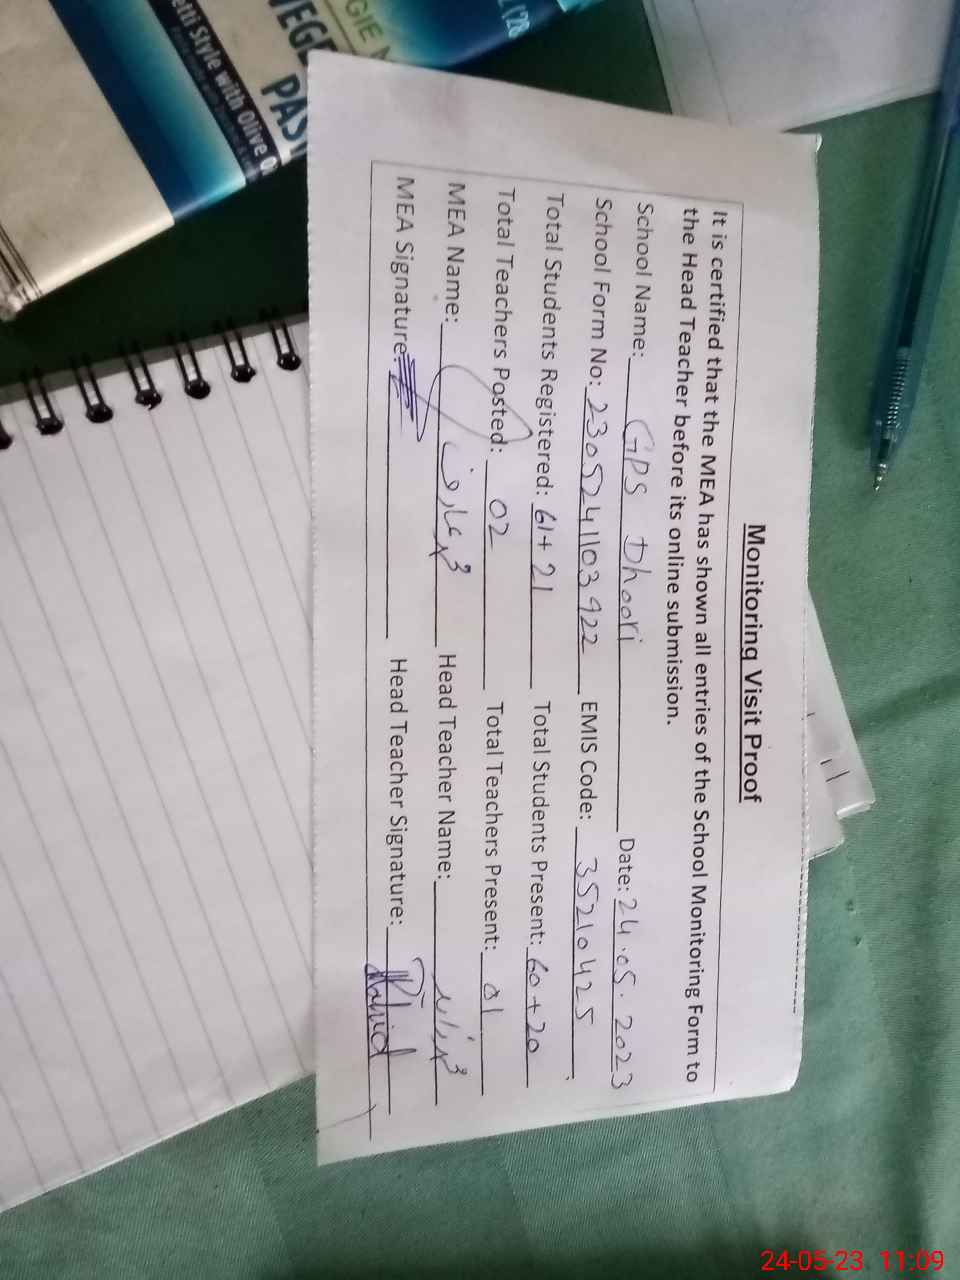 Monitoring Visit Proof
It is certified that the MEA has shown all entries of the School Monitoring Form to
the Head Teacher before its online submission.
School Name: GPS Dhoori Date: 24.05.2023
School Form No: 2305241103922 EMIS Code: 35210425
Total Students Registered: 61+21 Total Students Present: 60+20
Total Teachers Posted: 02 Total Teachers Present: 01
MEA Name: محمد عارف Head Teacher Name: محمد
MEA Signature: Head Teacher Signature:
etti Style with Olive O
VEGE
PAS
GIE
24-05-23 11:09